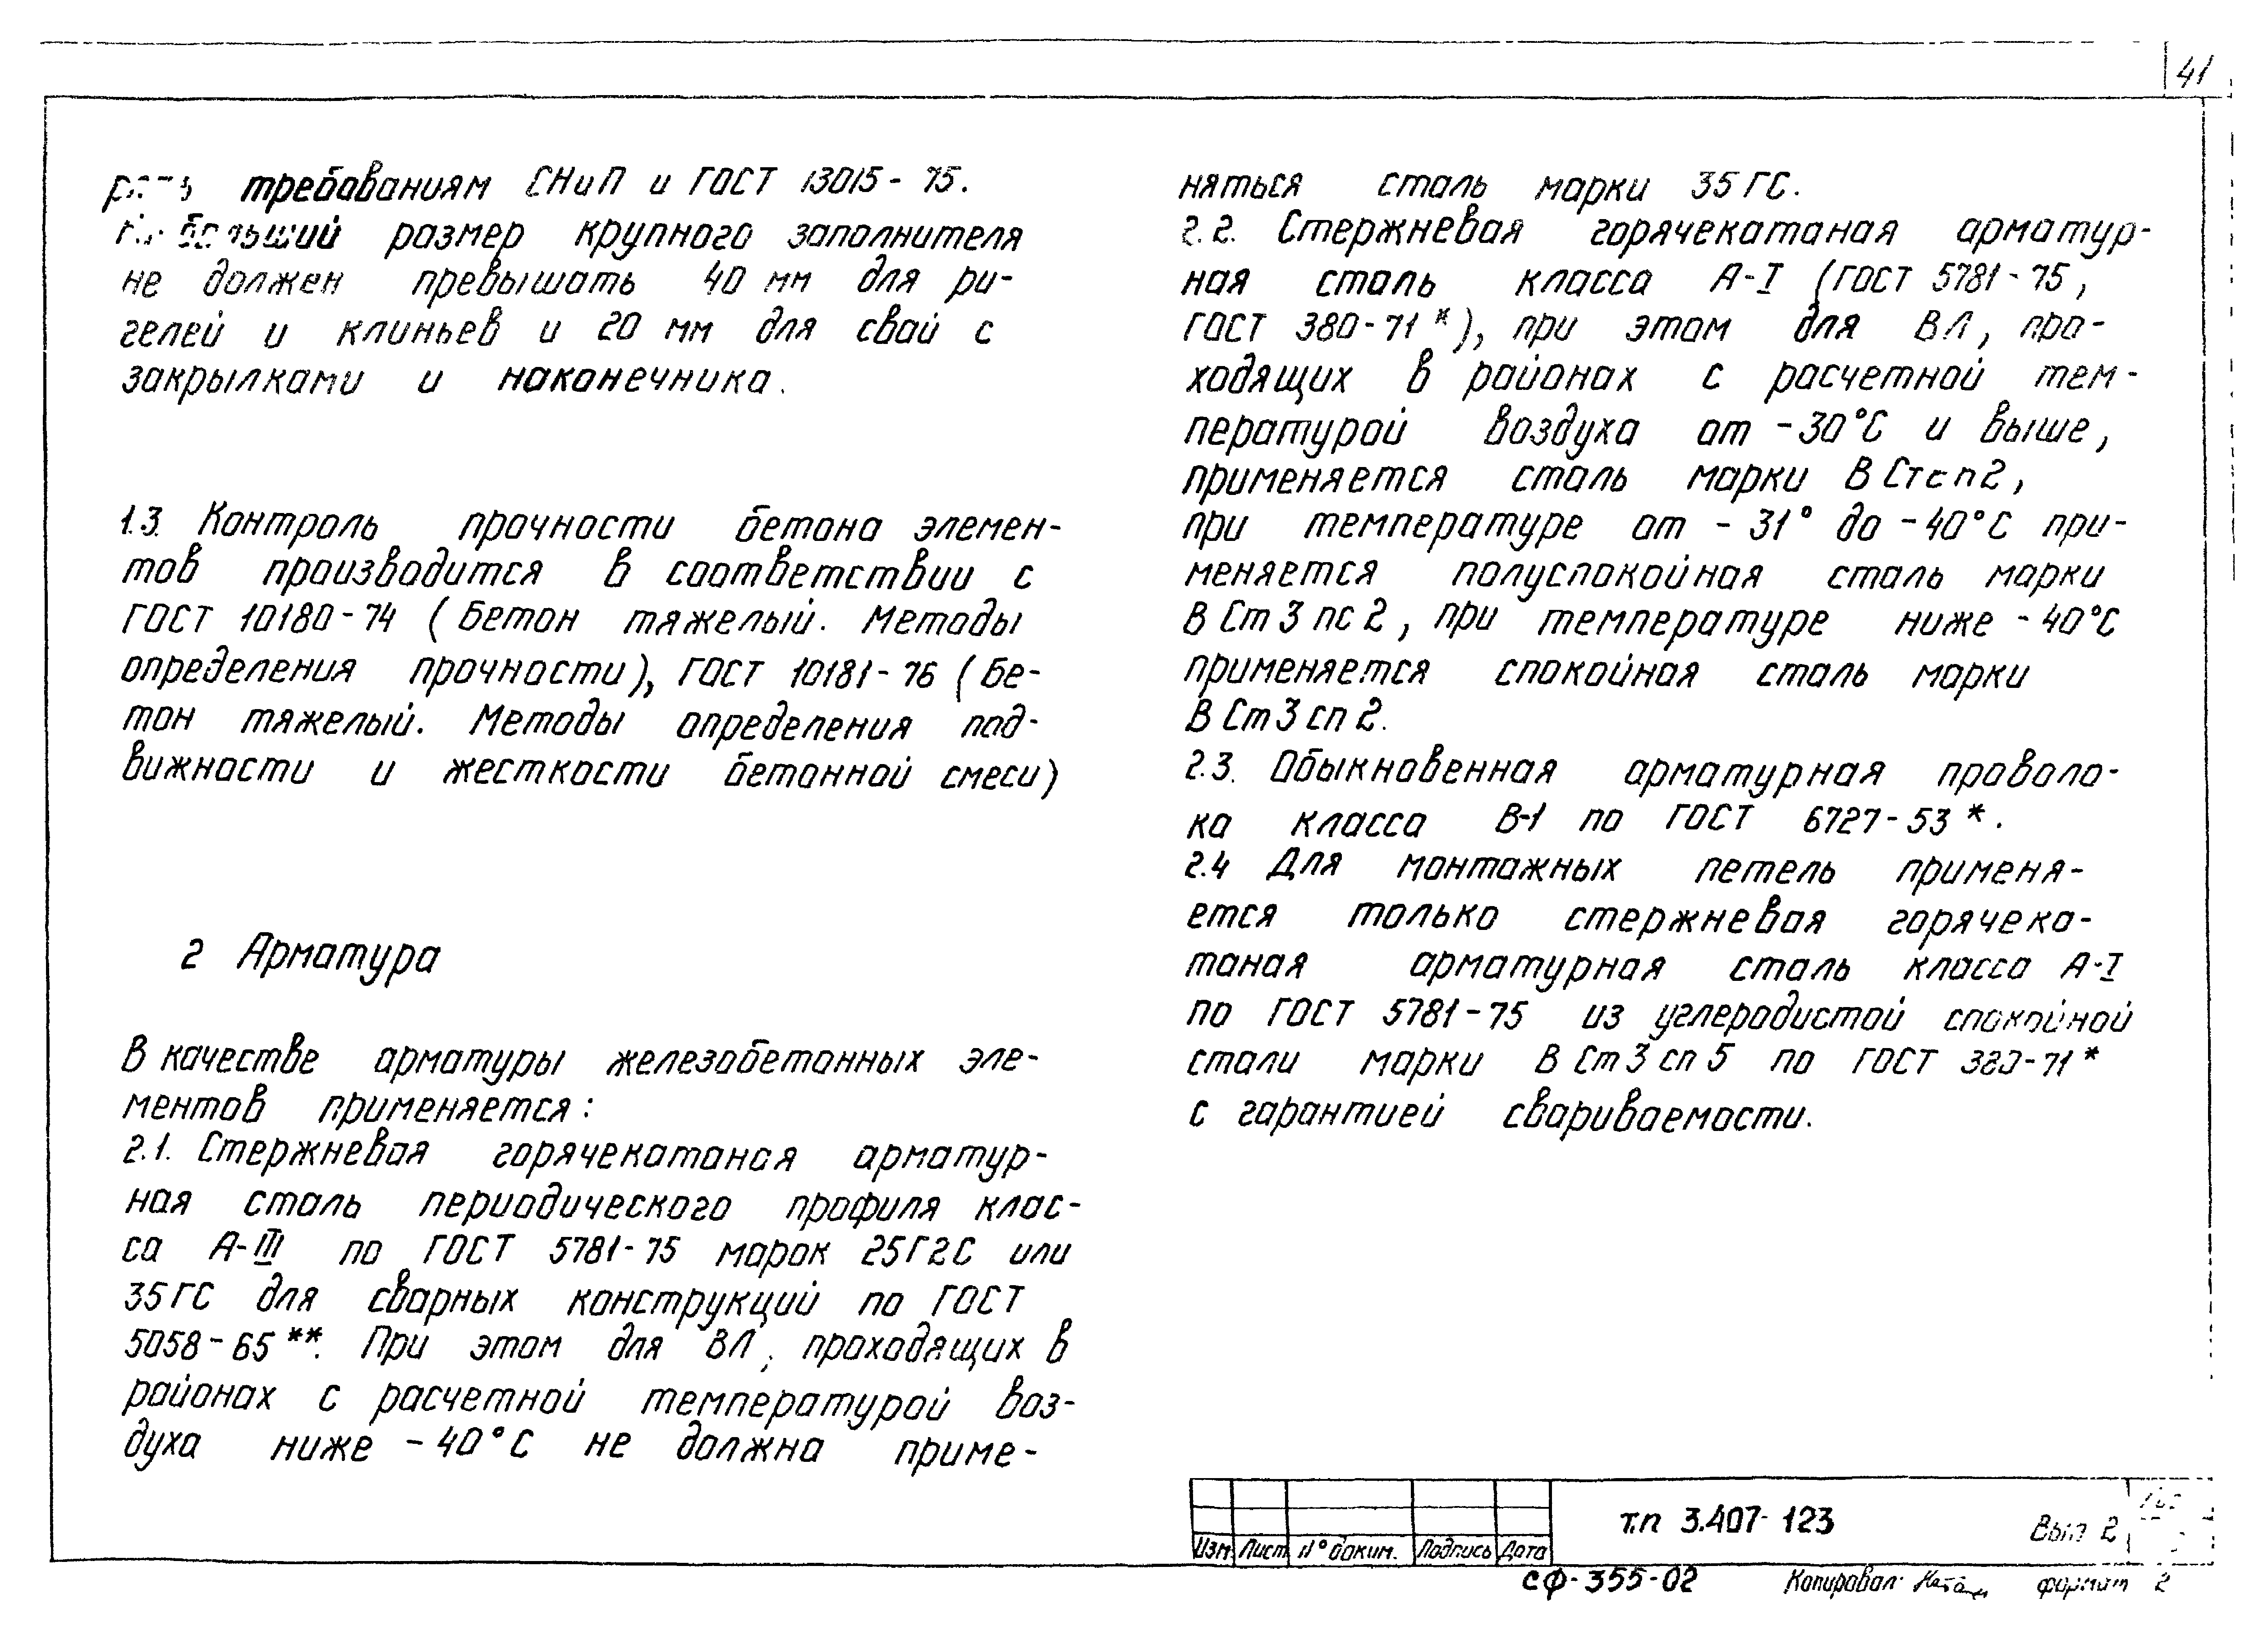 41
требованиям СНиП и ГОСТ 13015-75.
размер крупного заполнителя
не должен превышать 40 мм для ри-
гелей и клиньев и 20 мм для свай с
закрылками и наконечника.
1.3. Контроль прочности бетона элемен-
тов производится в соответствии с
ГОСТ 10180-74 (Бетон тяжелый. Методы
определения прочности), ГОСТ 10181-76 (Бе-
тон тяжелый. Методы определения под-
вижности и жесткости бетонной смеси)
2 Арматура
В качестве арматуры железобетонных эле-
ментов применяется:
2.1. Стержневая горячекатаная арматур-
ная сталь периодического профиля клас-
са А-III по ГОСТ 5781-75 марок 25Г2С или
35ГС для сварных конструкций по ГОСТ
5058-65**. При этом для ВЛ, проходящих в
районах с расчетной температурой воз-
духа ниже -40°С не должна приме-
няться сталь марки 35ГС.
2.2. Стержневая горячекатаная арматур-
ная сталь класса А-I (ГОСТ 5781-75,
ГОСТ 380-71*), при этом для ВЛ, про-
ходящих в районах с расчетной тем-
пературой воздуха от -30°С и выше,
применяется сталь марки
при температуре от -31° до -40°С при-
меняется полуспокойная сталь марки
ВСт3пс2, при температуре ниже -40°С
применяется спокойная сталь марки
ВСт3сп2.
2.3. Обыкновенная арматурная проволо-
ка класса В-1 по ГОСТ 6727-53*.
2.4 Для монтажных петель применя-
ется только стержневая горячека-
таная арматурная сталь класса А-I
по ГОСТ 5781-75 из углеродистой спокойной
стали марки ВСт3сп5 по ГОСТ 380-71*
с гарантией свариваемости.
Изм Лист N° докум. Подпись Дата
т.п 3.407-123
Вып 2
СФ-355-02 Копировал: формат 2